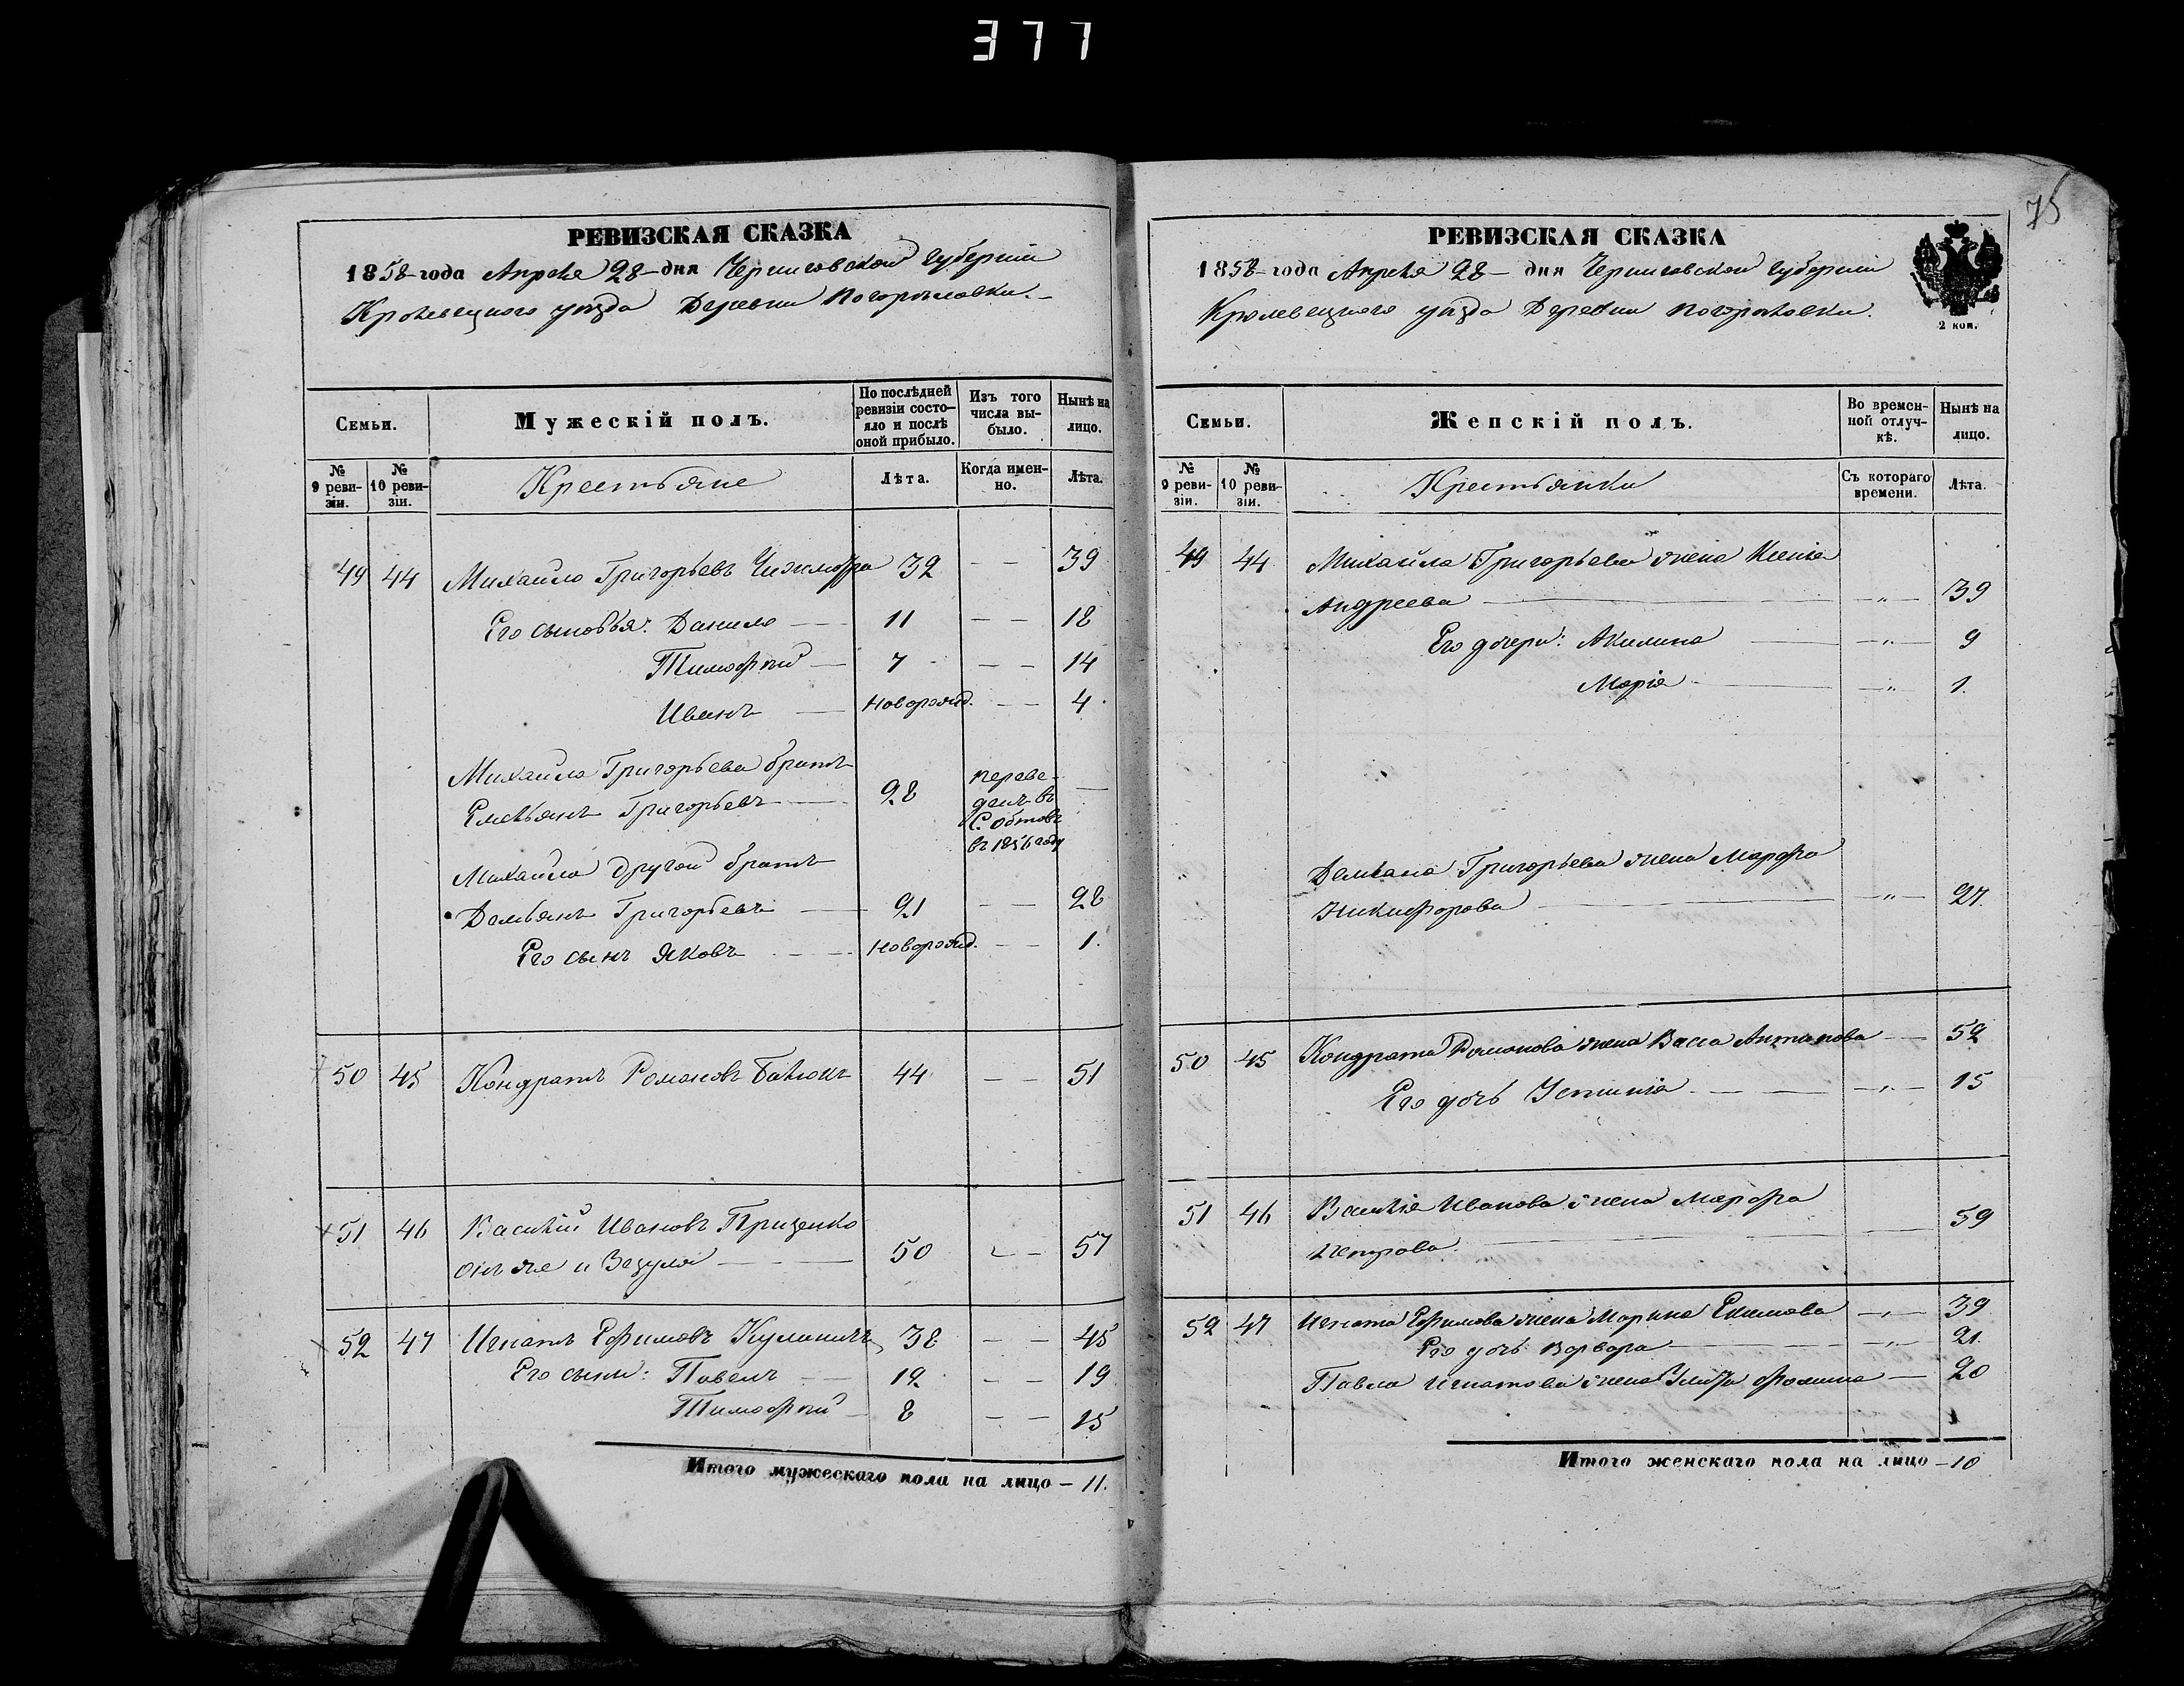 377
РЕВИЗСКАЯ СКАЗКА
1858 года Апреля 28 дня Черниговской губернии
Кролевецкого уѣзда Деревни Погорѣловки.
Семьи.
Мужескій полъ.
По послѣдней ревизіи состояло и послѣ оной прибыло.
Изъ того числа выбыло.
Нынѣ на лицо.
№ 9 ревизіи.
№ 10 ревизіи.
Крестьяне
Лѣта.
Когда именно.
Лѣта.
49 44 Михайло Григорьевъ 32 — — 39
Его сыновья: Данило — 11 — — 18
Тимофѣй — 7 — — 14
Иванъ — Новорожд. — — 4
Михайла Григорьева братъ
Емельянъ Григорьевъ — 28 переведенъ въ С. Обтовъ въ 1856 году —
Михайла другой братъ
Демьянъ Григорьевъ — 21 — — 28
Его сынъ Яковъ — Новорожд. — — 1.
50 45 Кондратъ Романовъ 44 — — 51
51 46 Василій Ивановъ Гриценко
онъ же и Зезуля — 50 — — 57
52 47 Игнатъ Ефимовъ Кулиничъ 38 — — 45
Его сыны: Павелъ — 12 — — 19
Тимофѣй — 8 — — 15
Итого мужескаго пола на лицо — 11.
75
РЕВИЗСКАЯ СКАЗКА
1858 года Апреля 28 — дня Черниговской губерніи
Кролевецкого уѣзда Деревни Погорѣловки.
2 коп.
Семьи.
Женскій полъ.
Во временной отлучкѣ.
Нынѣ на лицо.
№ 9 ревизіи.
№ 10 ревизіи.
Крестьянки
Съ котораго времени.
Лѣта.
49 44 Михайла Григорьева жена Ксенія
Андреева — „ — 39
Его дочери: Акилина — „ — 9
Марія — „ — 1.
Демьяна Григорьева жена Марфа
Никифорова — „ — 27.
50 45 Кондрата Романова жена Васса Антипова — 52
Его дочь Устинія — „ — 15
51 46 Василія Иванова жена Марфа
Петрова — 59
52 47 Игната Ефимова жена Марина Екимова — „ — 39
Его дочь Варвара — „ — 21.
Павла Игнатова жена Фомина — 20
Итого женскаго пола на лицо — 10